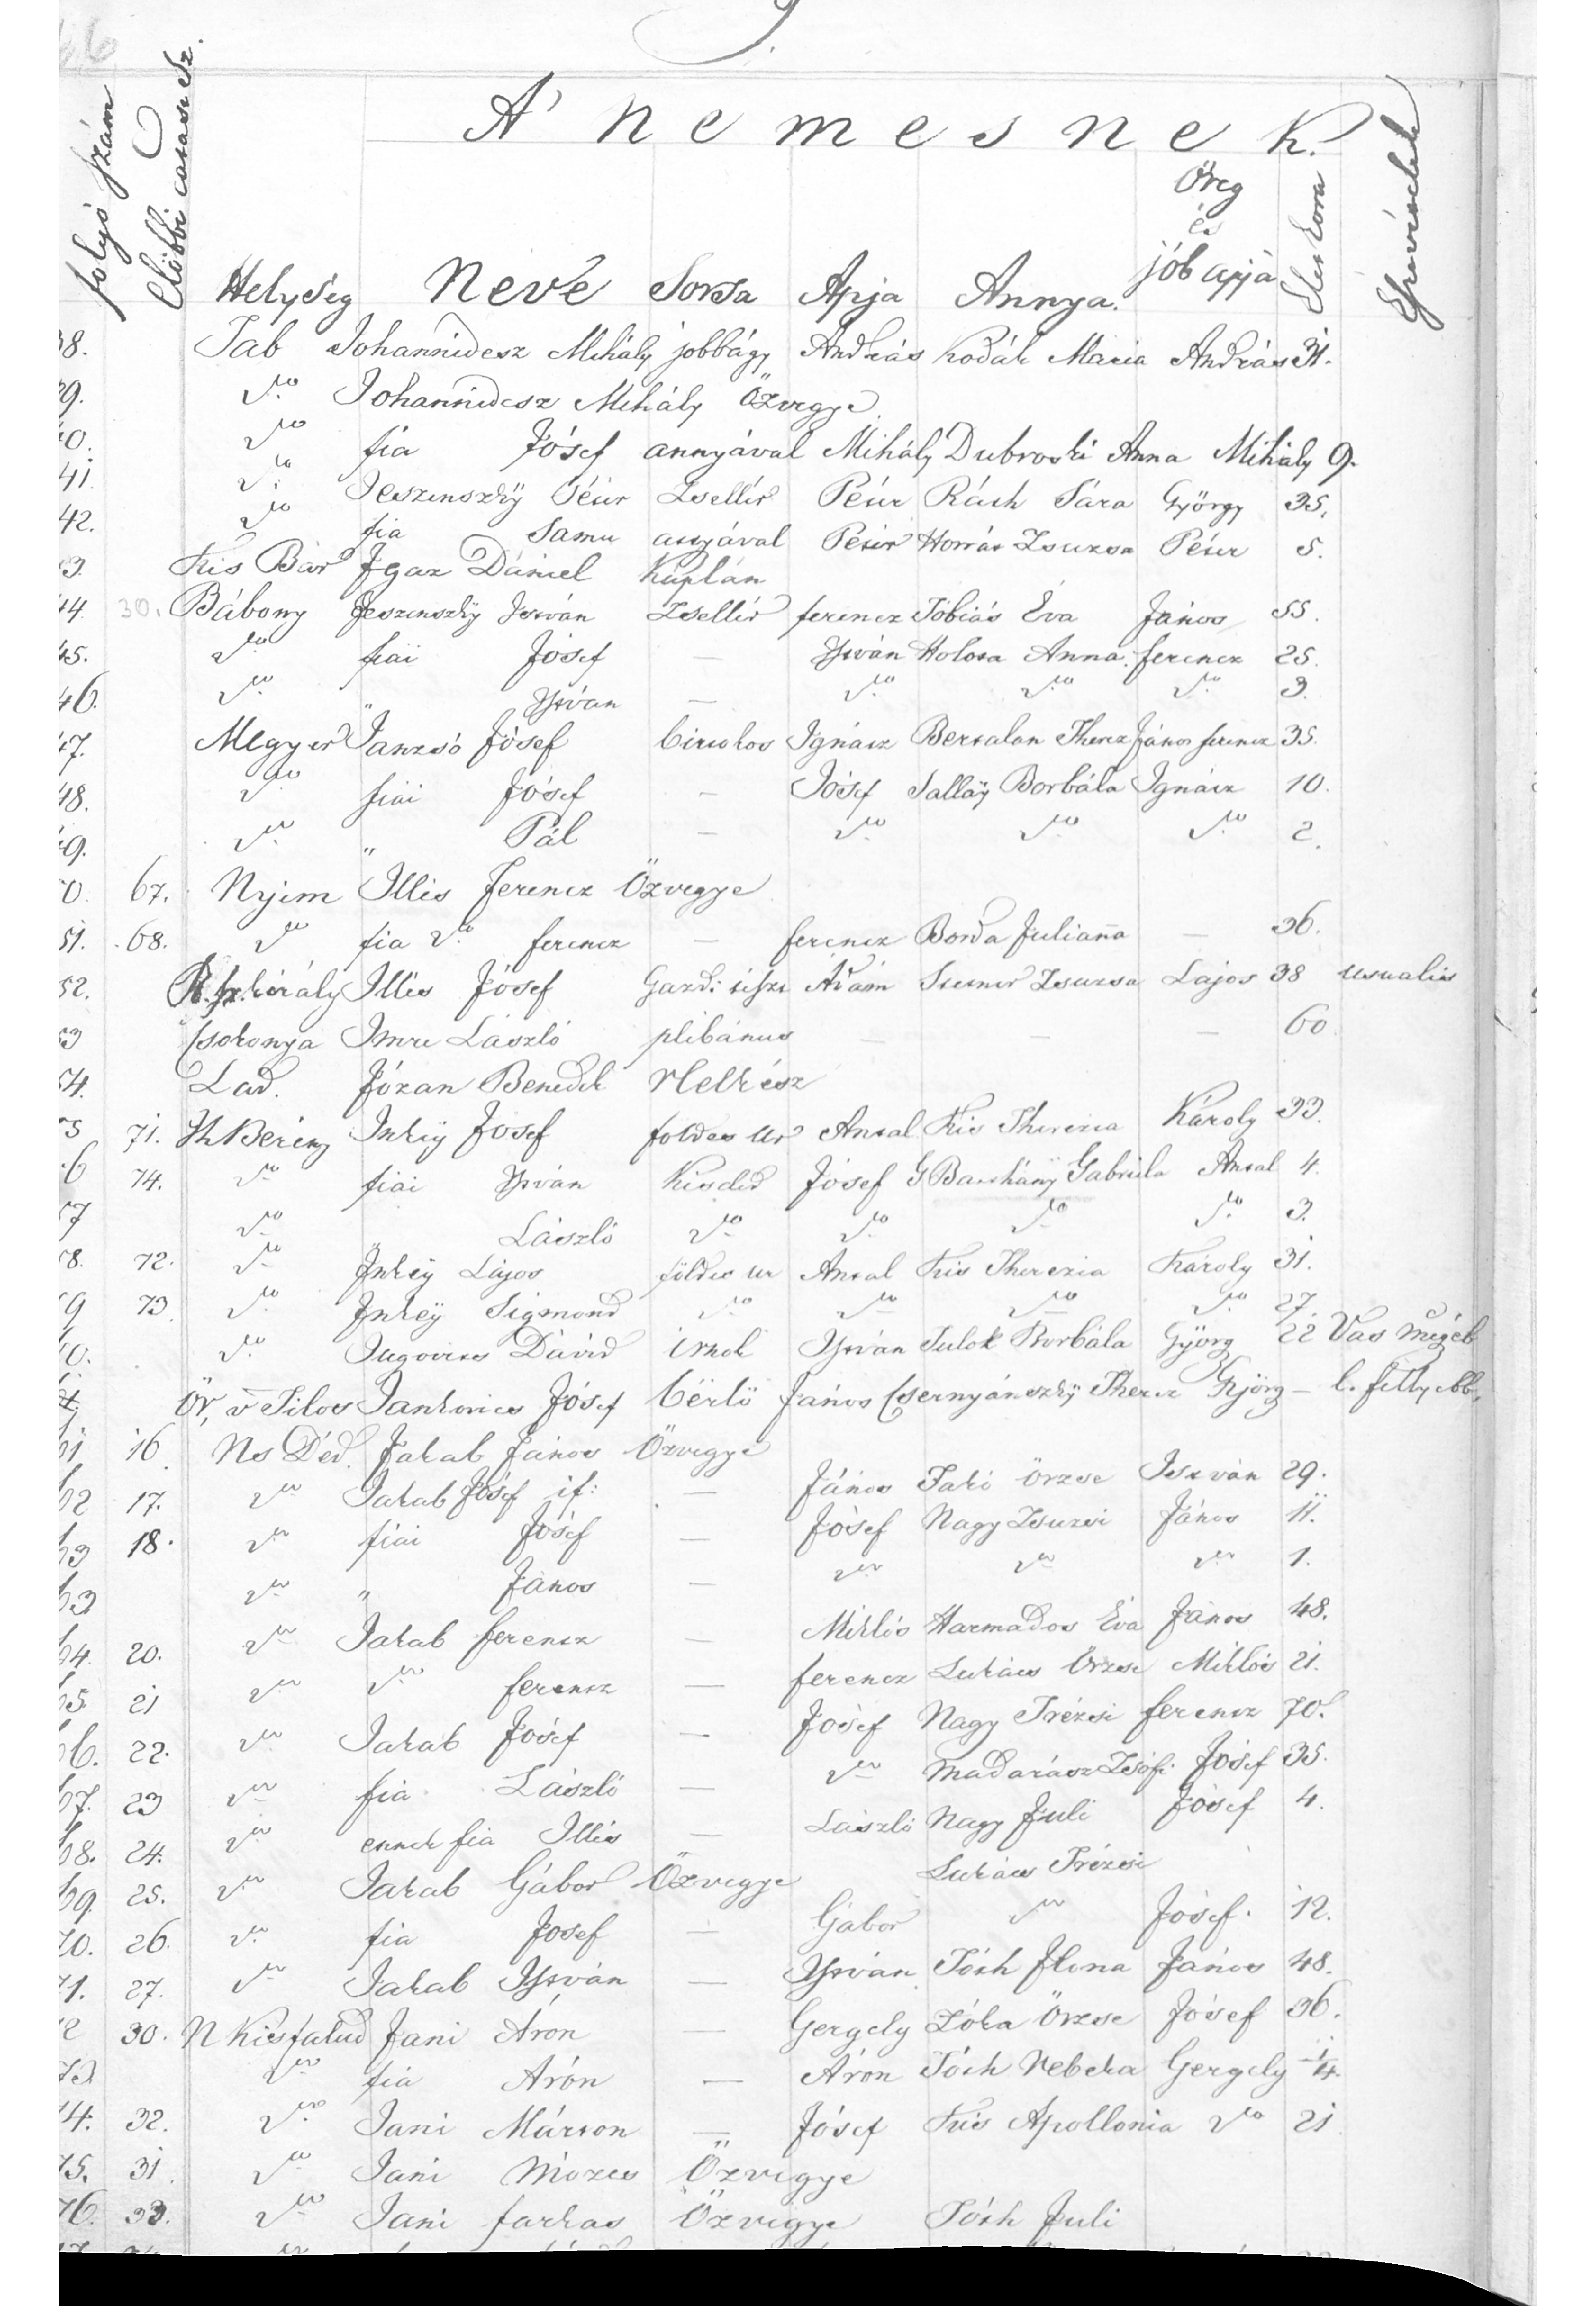 J.
A' nemesnek.
folyó szám
Előbbi
Helység Neve Sorsa Apja Annya. Öreg és jób apja Élet kora Észrevételek
38. Tab Johannidesz Mihály jobbágy András Kodák Maria András 31.
39. Do Johannidesz Mihály Özvegye
40. Do fia Jósef annyával Mihály Dubroski Anna Mihály 9.
41. Do Jeszenszkÿ Péter Zsellér Péter Ráth Sára György 35.
42. Do fia Samu Péter Zsuzsa Péter 5.
43. Kis Bár Igaz Dániel Káplán
44. 30. Bábony Jeszenszkÿ István Zsellér ferencz Tóbiás Éva János 55.
45. Do fiai Jósef — István Holosa Anna ferencz 25.
46. Do " István — Do Do Do 3.
47. Megyer Janzsó Jósef birtokos Ignácz Bertalan Therez János ferencz 35.
48. Do fiai Jósef — Jósef Sallaÿ Borbála Ignácz 10.
49. Do " Pál — Do Do Do 2.
50. 67. Nyim Illés Ferencz Özvegye
51. 68. Do fia Do ferencz — ferencz Borda Julianna — 36.
52. Illés Jósef Gazd: tiszt Ádám Zsuzsa Lajos 38 usualis
53 Csokonya Imre László plébánus — — — 60
54. Lad. Józan Benedek
55 71. Ih Berény Inkëÿ Josef foldes Ur Antal Kis Therezia Károly 33.
56 74. Do fiai István Kisded Jósef G Batthány Gabriela Antal 4.
57 Do " László Do Do Do Do 3.
58. 72. Do Inkeÿ Lajos földes ur Antal Kis Therezia Károly 31.
59 73 Do Inkëÿ Sigmond Do Do Do Do 27.
60. Do Jugovits Dávid írnok István Tulok Borbála Györg 22 Vas
Ör, v Tilos Jankovics Jósef bérlö János Csernyánszkÿ Therez Györg —
61 16. Ns Déd. Jakab János Özvegye
62 17. Do Jakab Jósef if: — János Jakó Örzse István 29.
63 18. Do fiai Jósef — Jósef Nagy Zsuzsi János 11.
63 Do " János — Do Do Do 1.
64. 20. Do Jakab ferencz — Miklós Harmados Éva János 48.
65 21 Do Do ferencz — ferencz Lukács Örzse Miklós 21.
66. 22. Do Jakab Jósef — Jósef Nagy Trézsi ferencz 70.
67. 23 Do fia László — Do Madarász Zsófi Jósef 35.
68. 24. Do ennek fia Illés — László Nagy Juli Jósef 4.
69. 25. Do Jakab Gábor Özvegye Lukács Trézsi
70. 26. Do fia Josef — Gábor Do Jósef. 12.
71. 27. Do Jakab István — István Tóth Ilona János 48.
72 30. N Kisfalud Jani Áron — Gergely Zóka Örzse Jósef 36.
73. Do fia Áron — Áron Tóth Rebeka Gergely 1/4.
74. 32. Do Jani Márton — Jósef Kis Apollonia Do 21
75. 31. Do Jani Mózes Özvegye
76. 33. Do Jani farkas Özvegye Tóth Juli